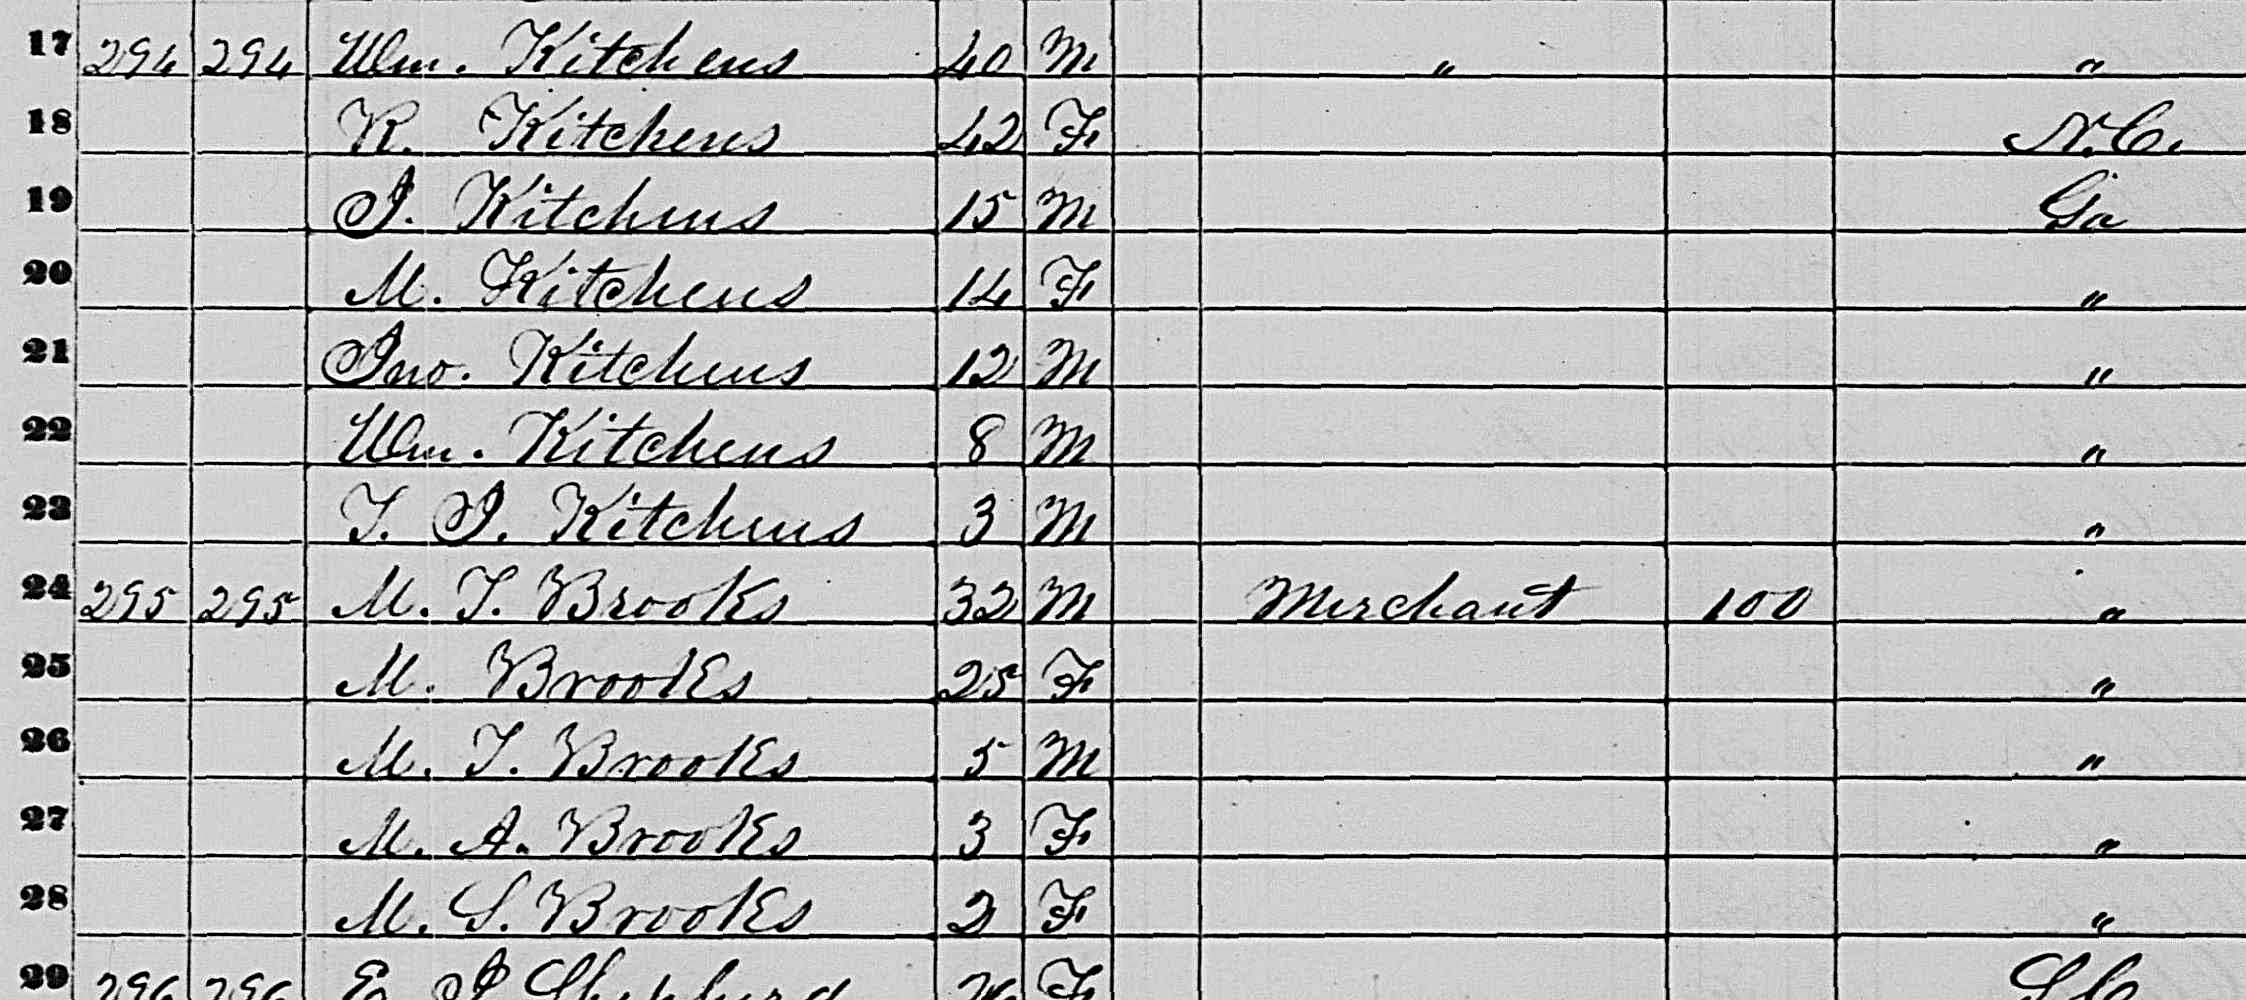 17 294 294 Wm. Kitchens 40 M " "
18 R. Kitchens 42 F N.C.
19 J. Kitchens 15 M Ga
20 M. Kitchens 14 F "
21 Jno. Kitchens 12 M "
22 Wm. Kitchens 8 M "
23 T. J. Kitchens 3 M "
24 295 295 M. T. Brooks 32 M Merchant 100 "
25 M. Brooks 25 F "
26 M. T. Brooks 5 M "
27 M. A. Brooks 3 F "
28 M. S. Brooks 2 F "
29 296 296 E. J. Shepherd F S.C.